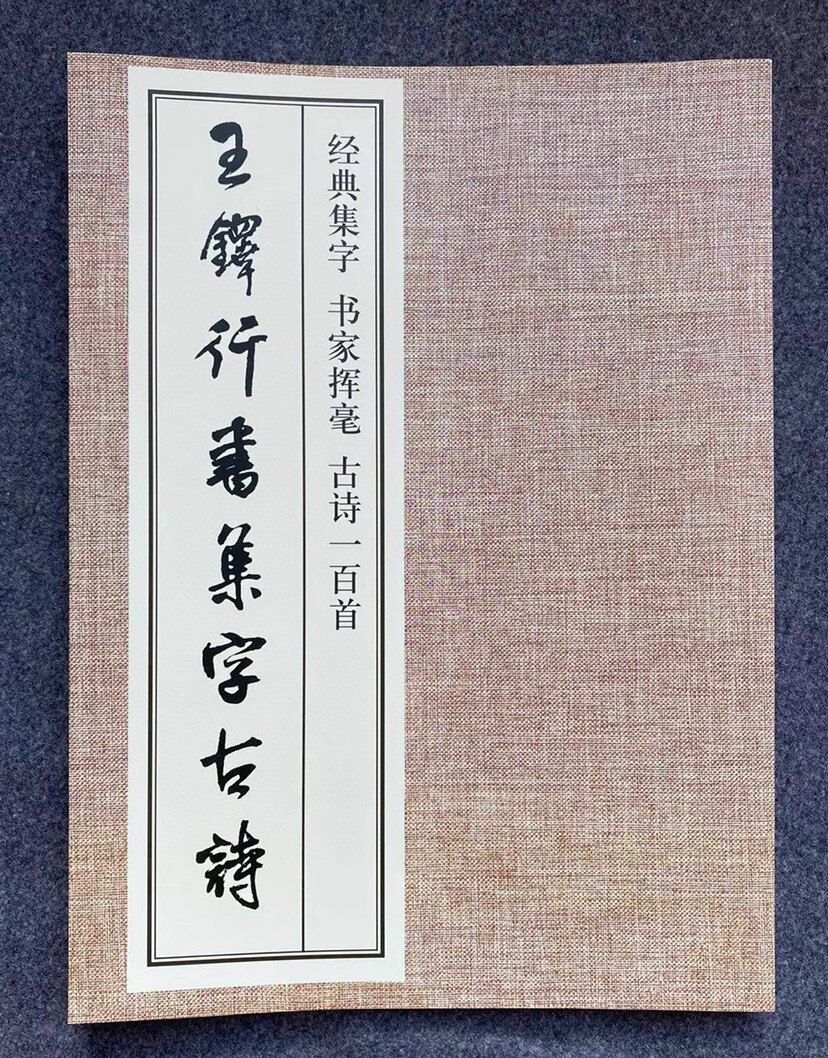 经典集字 书家挥毫 古诗一百首
王鐸行書集字古詩